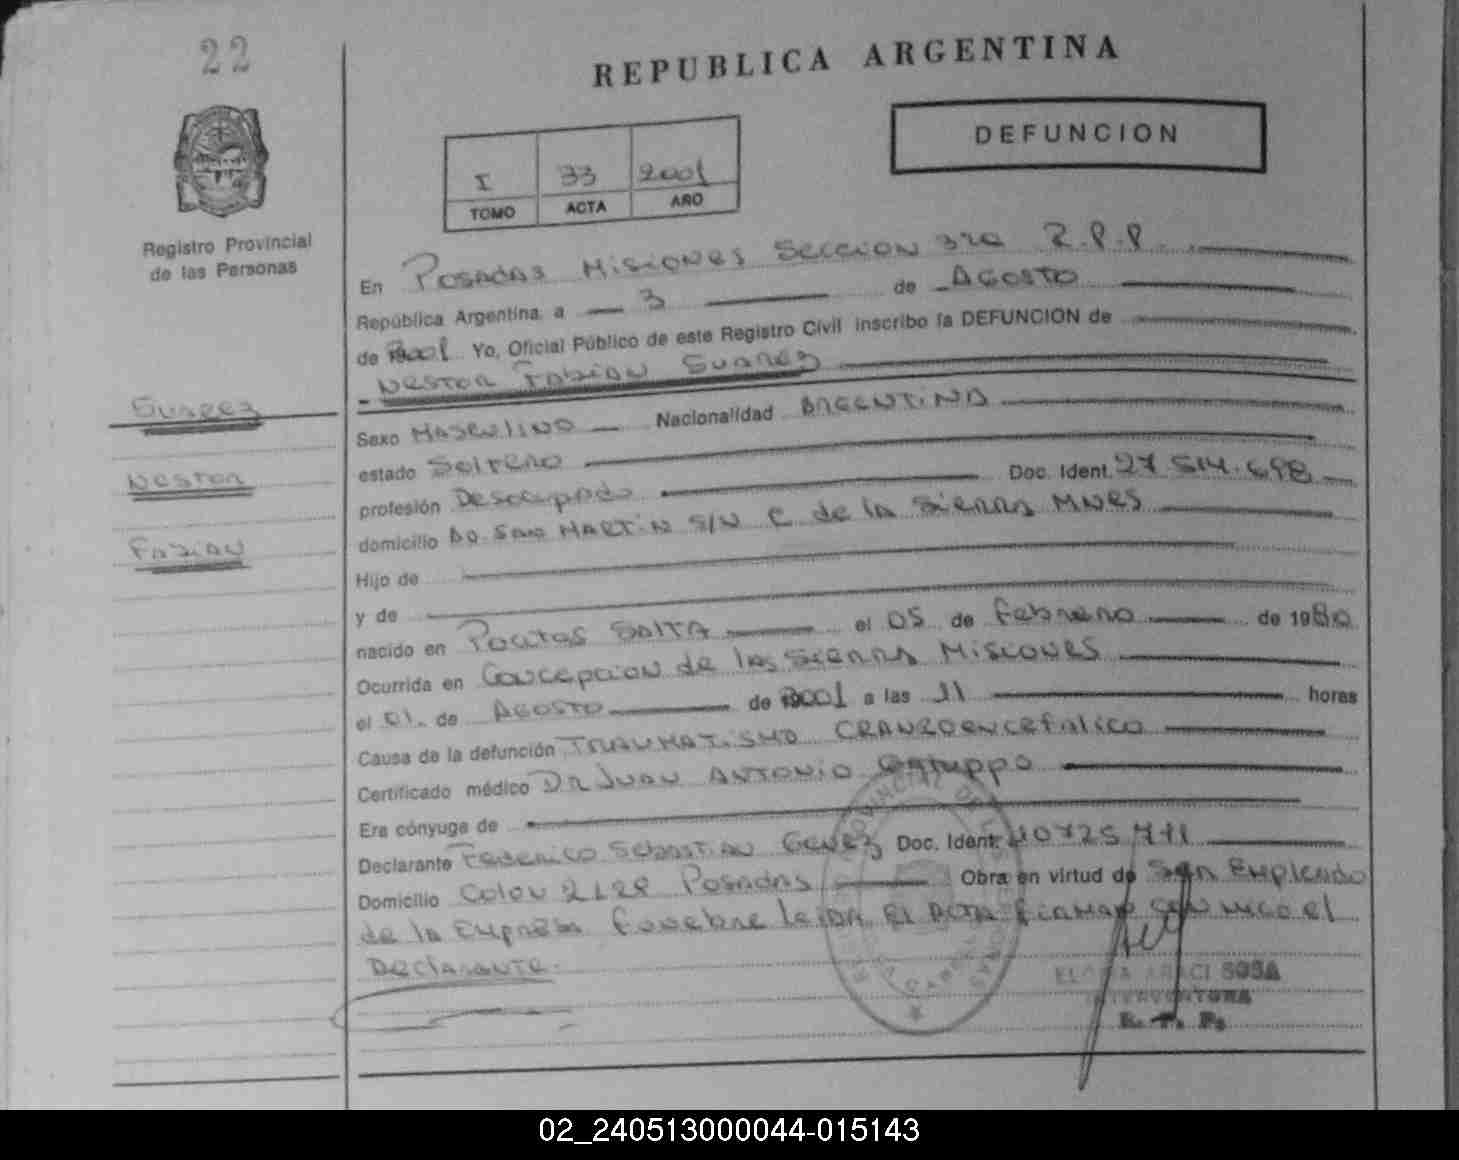 22
REPUBLICA ARGENTINA
DEFUNCION
I 33 2001
TOMO ACTA AÑO
Registro Provincial
de las Personas
En Posadas Misiones Seccion 3ra R.P.P.
República Argentina a 3 de Agosto
de 2001 Yo, Oficial Público de este Registro Civil inscribo la DEFUNCION de
Nestor Fabian Suarez
Suarez
Nestor
Fabian
Sexo Masculino Nacionalidad Argentina
estado Soltero
profesión Desocupado Doc. Ident. 27.514.698
domicilio Bo. San Martin S/N C de la Sierra Mnes
Hijo de
y de
nacido en Pocitos Salta el 05 de Febrero de 1980
Ocurrida en Concepcion de las Sierra Misiones
el 01 de Agosto de 2001 a las 11 horas
Causa de la defunción Traumatismo Craneoencefalico
Certificado médico Dr Juan Antonio
Era cónyuge de
Declarante Federico Sebastian Doc. Ident.
Domicilio Colon 2128 Posadas Obra en virtud de Ser Empleado
de la Empresa Funebre Leida El Acta Firmap Con migo el
Declarante.
ARACI SOSA
INTERVENTORA
R. P. P.
02_240513000044-015143